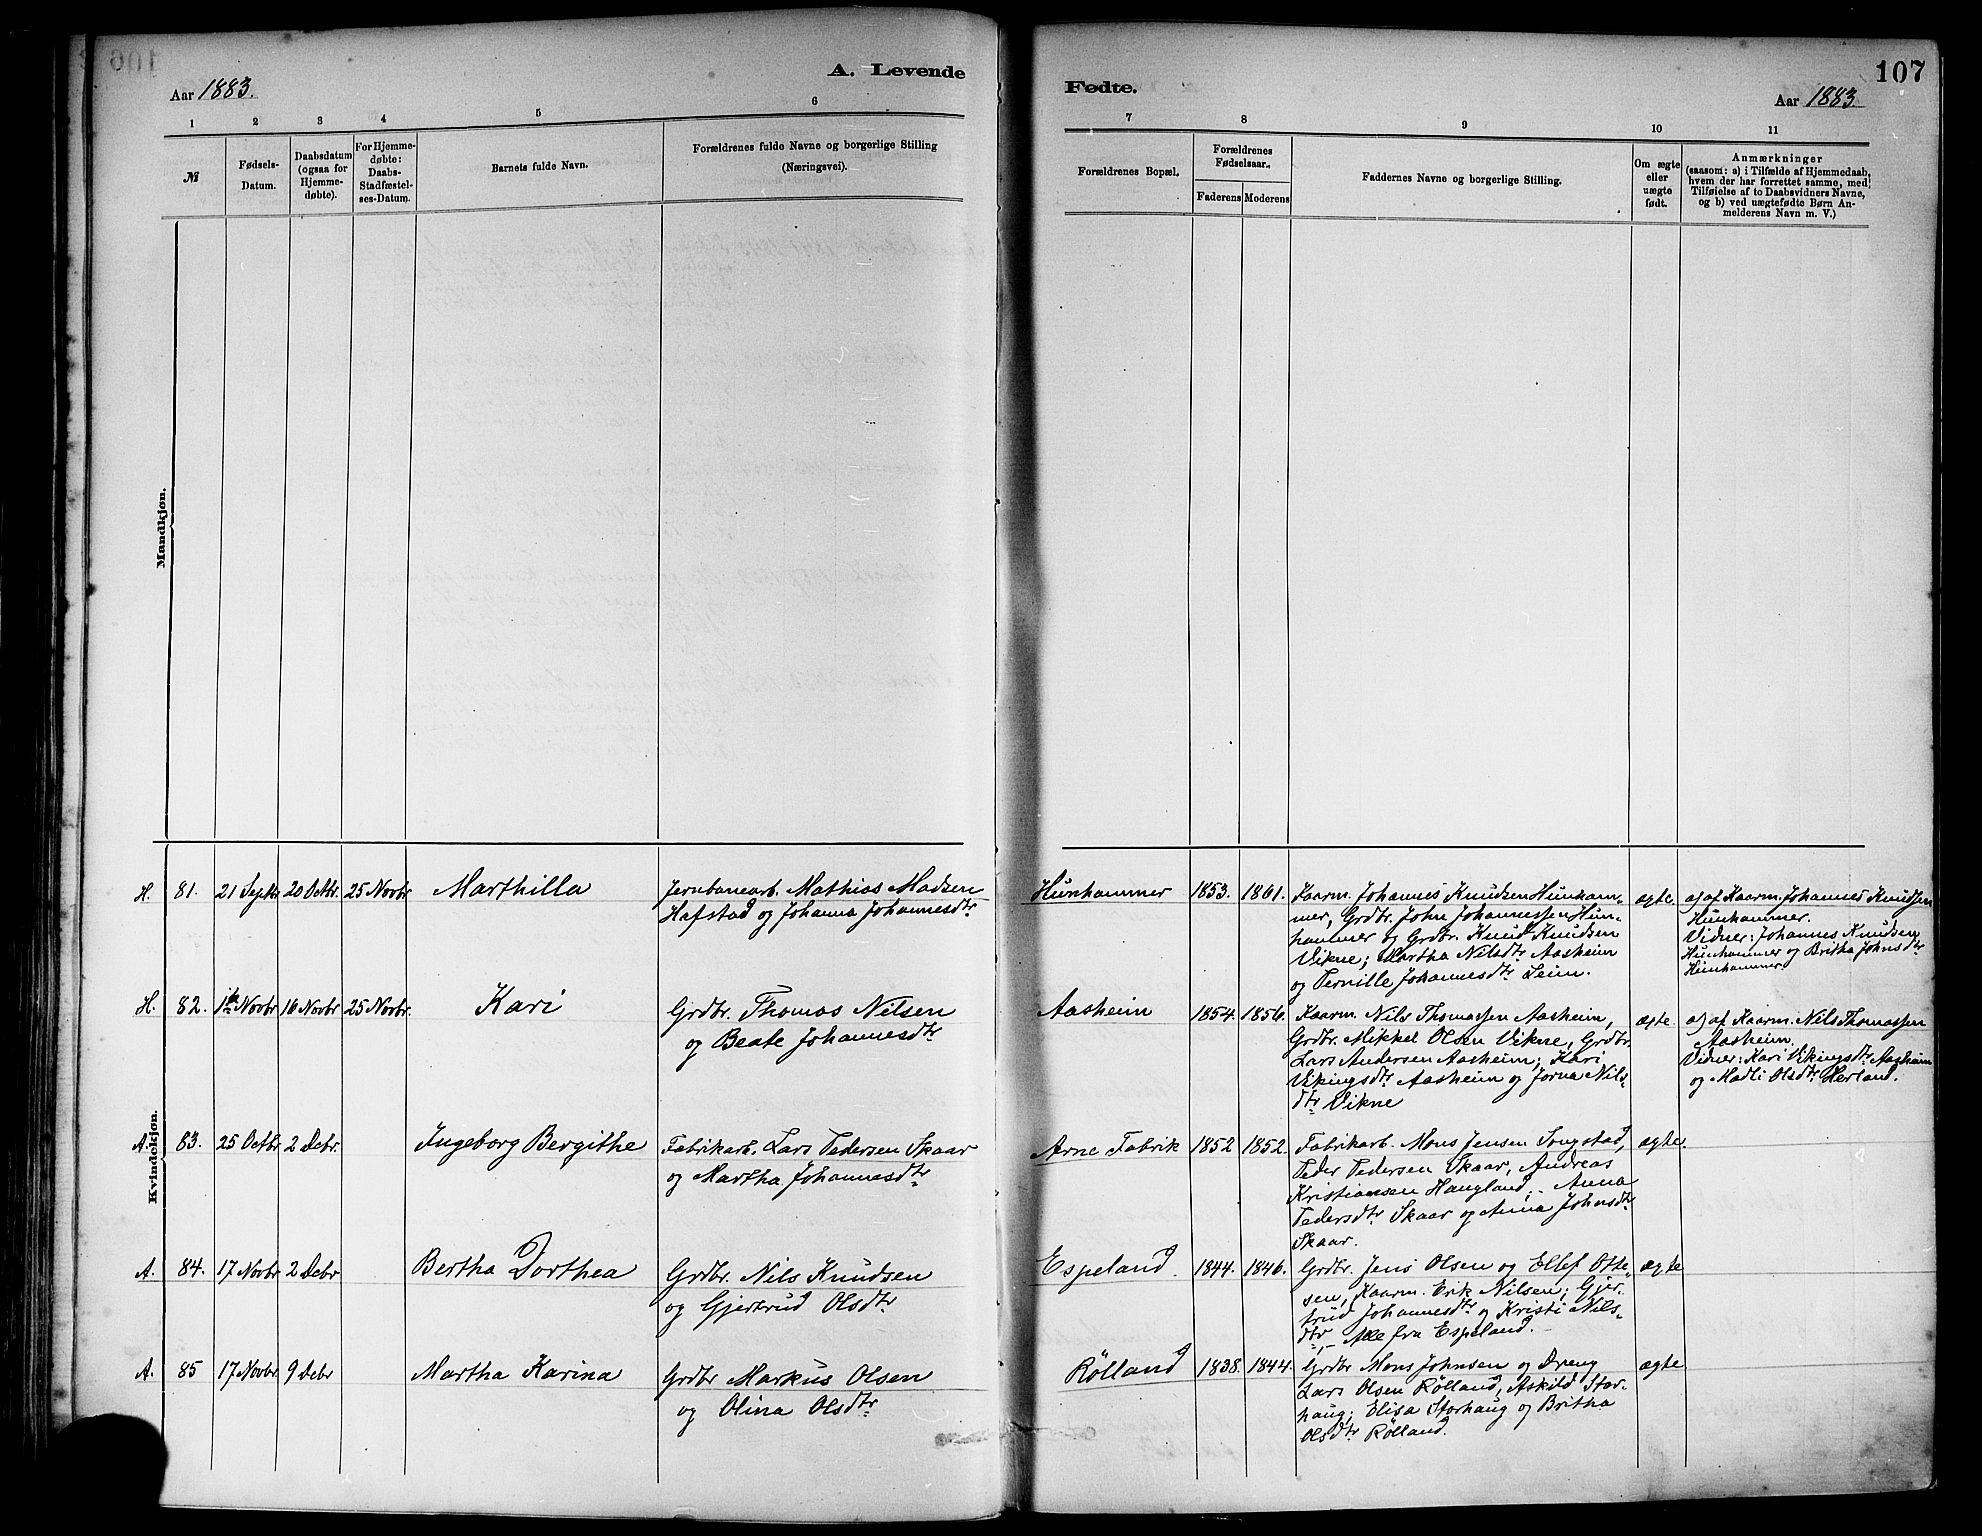 Aar 1883.
A. Levende
1
2
3
4
5
6
№
Fødsels-
Datum.
Daabsdatum
(ogsaa for
Hjemme-
døbte).
For Hjemme-
døbte:
Daabs-
Stadfæstel-
ses-Datum.
Barnets fulde Navn.
Forældrenes fulde Navne og borgerlige Stilling
(Næringsvei).
Mandkjøn.
Kvindekjøn.
H. 81. 21 Septbr. 20 Octbr. 25 Novbr Marthilla
Jernbanearb. Mathias Madsen
Hafstad og Johanna Johannesdtr
H. 82. 1ste Novbr 16 Novbr 25 Novbr. Kari
Grdbr. Thomas Nilsen
og Beate Johannesdtr
A. 83. 25 Octbr 2 Debr. Ingeborg Bergithe
Fabrikarb. Lars Pedersen Skaar
og Martha Johannesdtr
A. 84. 17 Novbr 2 Debr Bertha Dorthea
Grdbr. Nils Knudsen
og Gjertrud Olsdtr
A. 85 17 Novbr. 9 Debr Martha Karina
Grdbr Markus Olsen
og Olina Olsdtr
Fødte.
107
Aar 1883.
7
8
9
10
11
Forældrenes Bopæl.
Forældrenes
Fødselsaar.
Faderens
Moderens
Faddernes Navne og borgerlige Stilling.
Om ægte
eller
uægte
født.
Anmærkninger
(saasom: a) i Tilfælde af Hjemmedaab,
hvem der har forrettet samme, med
Tilføielse af to Daabsvidners Navne,
og b) ved uægtefødte Børn An-
melderens Navn m. V.)
Hunhammer 1853. 1861.
Kaarm. Johannes Knudsen Hunham-
mer, Grdbr. John Johannessen Hun-
hammer og Grdbr. Knud Knudsen
Vikne; Martha Nilsdtr Aasheim
og Pernille Johannesdtr Leim.
ægte.
a) af Kaarm. Johannes Knudsen
Hunhammer.
Vidner: Johannes Knudsen
Hunhammer og Britha Johnsdtr
Hunhammer
Aasheim 1854. 1856.
Kaarm. Nils Thomassen Aasheim,
Grdbr. Mikkel Olsen Vikne, Grdbr.
Lars Andersen Aasheim; Kari
Vikingsdtr Aasheim og Jorna Nils-
dtr Vikne
ægte.
a) af Kaarm. Nils Thomassen
Aasheim.
Vidner: Kari Vikingsdtr Aasheim
og Madli Olsdtr Herland.
Arne Fabrik 1852 1852.
Fabrikarb. Mons Jensen Songstad,
Peder Pedersen Skaar, Andreas
Kristiansen Haugland, Anna
Pedersdtr Skaar og Anna Johnsdtr
Skaar.
ægte.
Espeland. 1844. 1846.
Grdbr. Jens Olsen og Ellef Otte-
sen, Kaarm. Erik Nilsen; Gjer-
trud Johannesdtr og Kristi Nils-
dtr, Alle fra Espeland.
ægte
Rølland 1838. 1844.
Grdbr Mons Johnsen og Dreng
Lars Olsen Rølland, Askild Stor-
haug; Elisa Storhaug og Britha
Olsdtr Rølland.
ægte